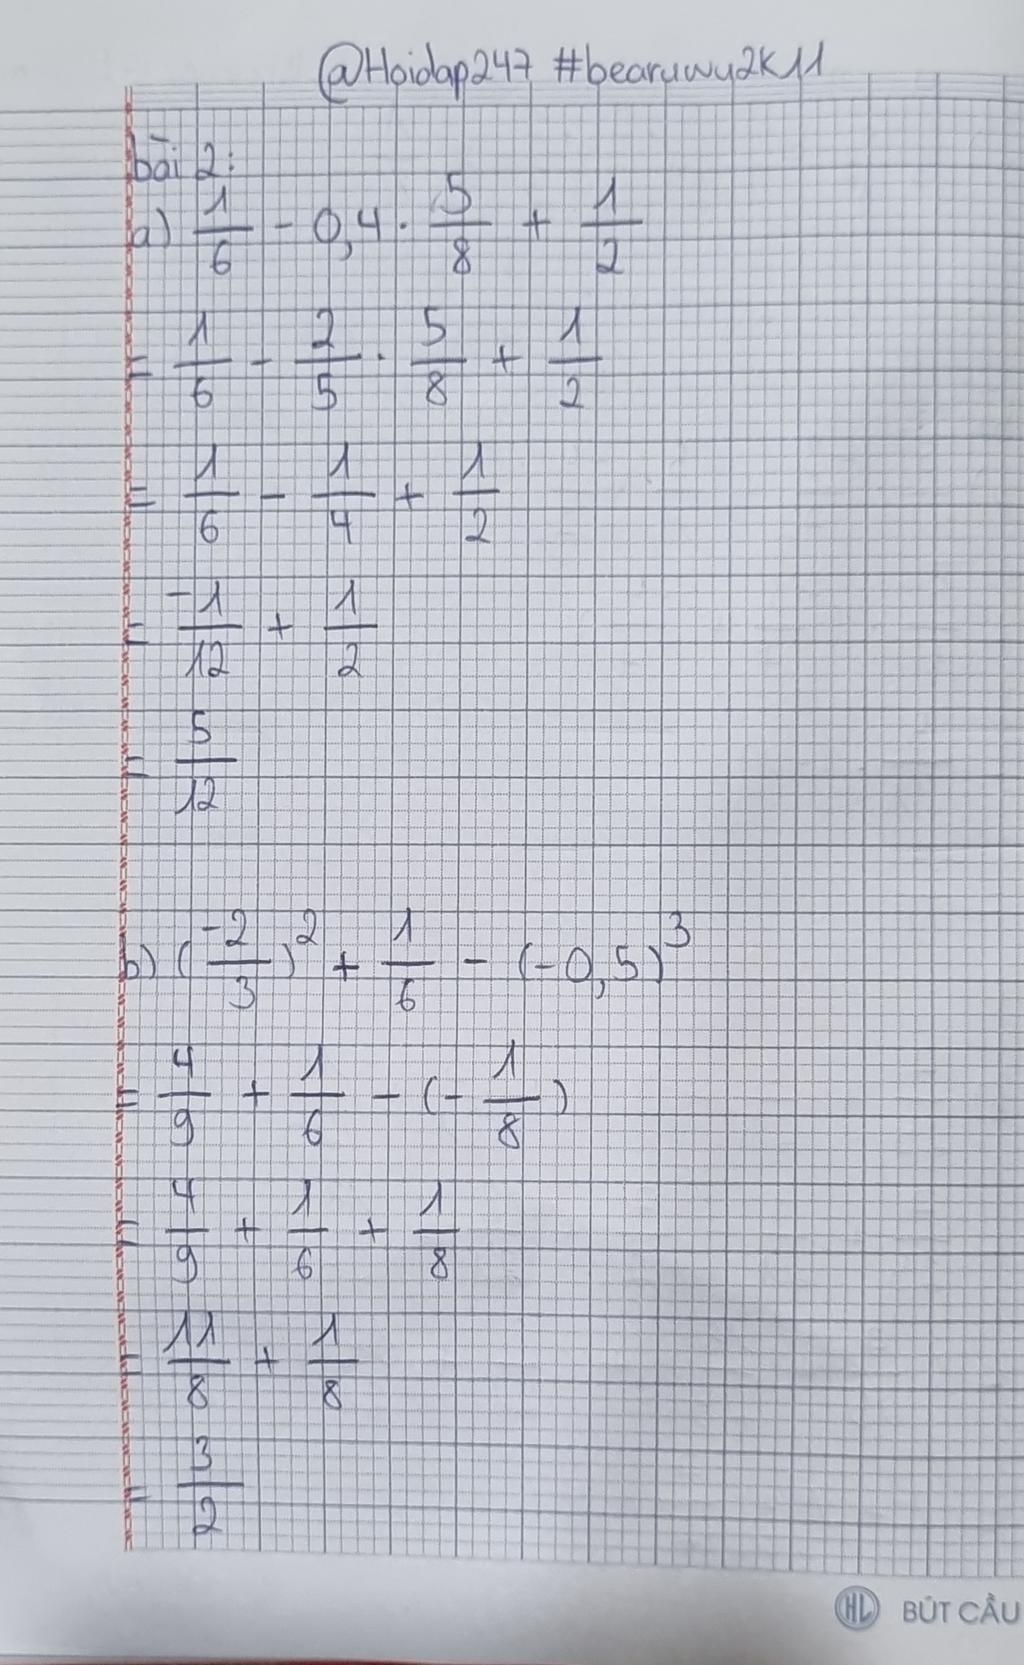 @Hoidap247 #bearuwu2k11
bài 2:
a) 1/6 - 0,4 . 5/8 + 1/2
= 1/6 - 2/5 . 5/8 + 1/2
= 1/6 - 1/4 + 1/2
= -1/12 + 1/2
= 5/12
b) (-2/3)² + 1/6 - (-0,5)³
= 4/9 + 1/6 - (-1/8)
= 4/9 + 1/6 + 1/8
= 11/8 + 1/8
= 3/2
HL BÚT CẦU